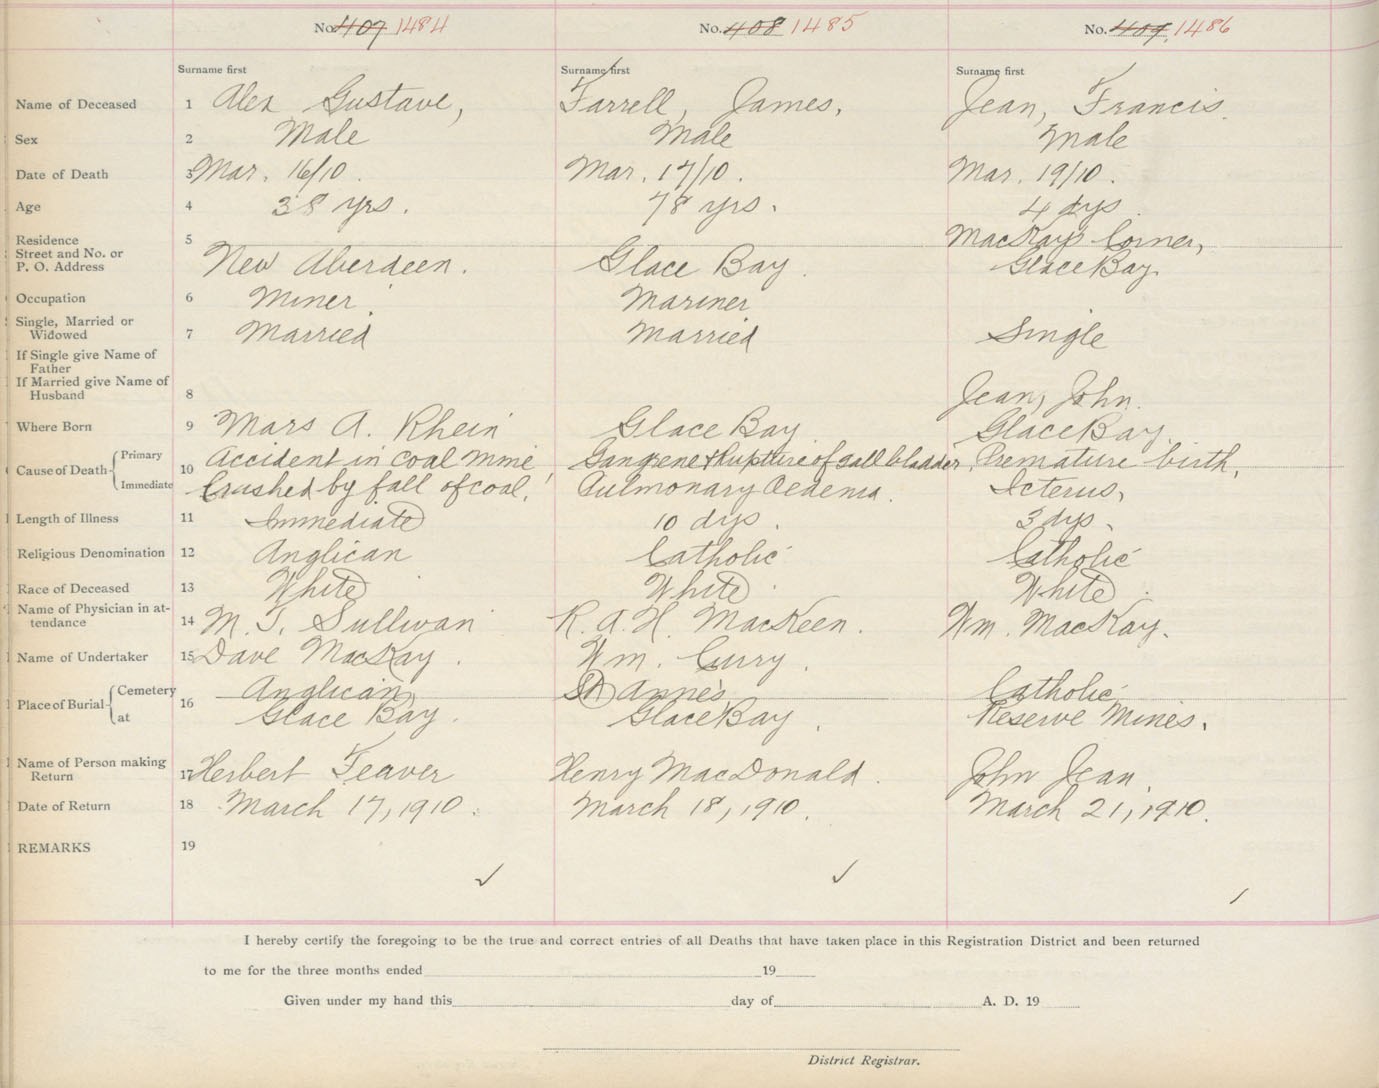 No. 407 1484 No. 408 1485 No. 409 1486
Surname first Surname first Surname first
Name of Deceased 1 Alex Gustave, Farrell, James, Jean, Francis.
Sex 2 Male Male Male
Date of Death 3 Mar. 16/10. Mar. 17/10. Mar. 19/10.
Age 4 38 yrs. 78 yrs. 4 dys.
Residence 5 MacKay's Corner,
Street and No. or
P. O. Address New Aberdeen. Glace Bay. Glace Bay.
Occupation 6 Miner Mariner
Single, Married or
Widowed 7 Married Married Single
If Single give Name of
Father
If Married give Name of
Husband 8 Jean, John.
Where Born 9 Mars A. Rhein Glace Bay. Glace Bay.
Cause of Death Primary 10 Accident in coal mine, Gangrene & Rupture of gall bladder, Premature birth,
Immediate Crushed by fall of coal. Pulmonary Oedema. Icterus,
Length of Illness 11 Immediate 10 dys. 3 dys.
Religious Denomination 12 Anglican Catholic Catholic
Race of Deceased 13 White White White
Name of Physician in at-
tendance 14 M. T. Sullivan R. A. H. MacKeen. Wm. MacKay.
Name of Undertaker 15 Dave MacKay. Wm. Curry.
Place of Burial Cemetery 16 Anglican St Anne's Catholic
at Glace Bay. Glace Bay. Reserve Mines.
Name of Person making
Return 17 Herbert Teaver Henry MacDonald. John Jean.
Date of Return 18 March 17, 1910. March 18, 1910. March 21, 1910.
REMARKS 19
I hereby certify the foregoing to be the true and correct entries of all Deaths that have taken place in this Registration District and been returned
to me for the three months ended 19
Given under my hand this day of A. D. 19
District Registrar.